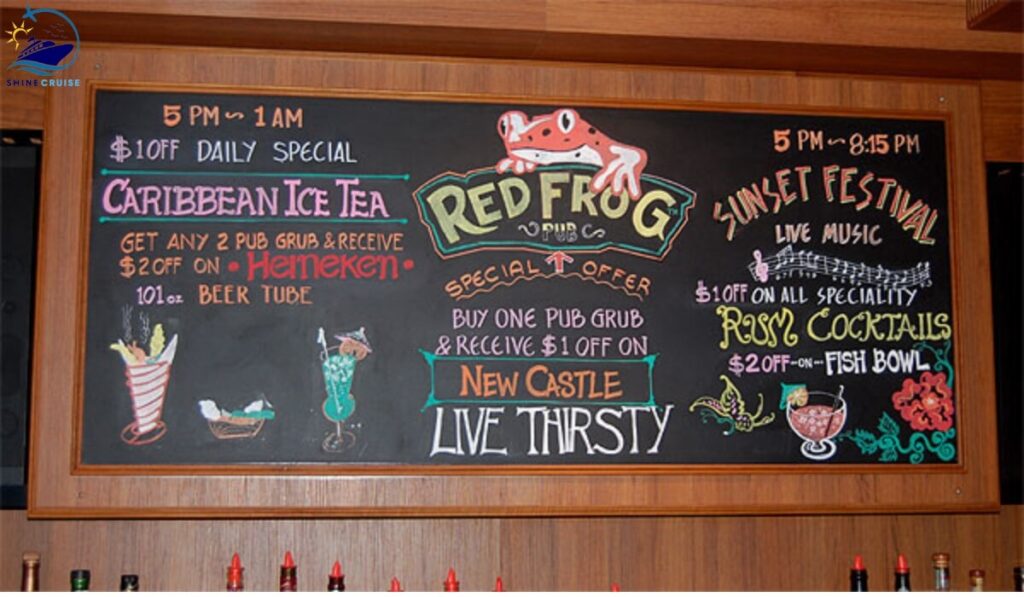 SHINE CRUISE
5 PM ~ 1 AM
$1 OFF DAILY SPECIAL
CARIBBEAN ICE TEA
GET ANY 2 PUB GRUB & RECEIVE
$2 OFF ON • Heineken •
101 oz BEER TUBE
RED FROG
PUB
SPECIAL OFFER
BUY ONE PUB GRUB
& RECEIVE $1 OFF ON
NEW CASTLE
LIVE THIRSTY
5 PM ~ 8:15 PM
SUNSET FESTIVAL
LIVE MUSIC
$1 OFF ON ALL SPECIALITY
RUM COCKTAILS
$2 OFF -ON- FISH BOWL